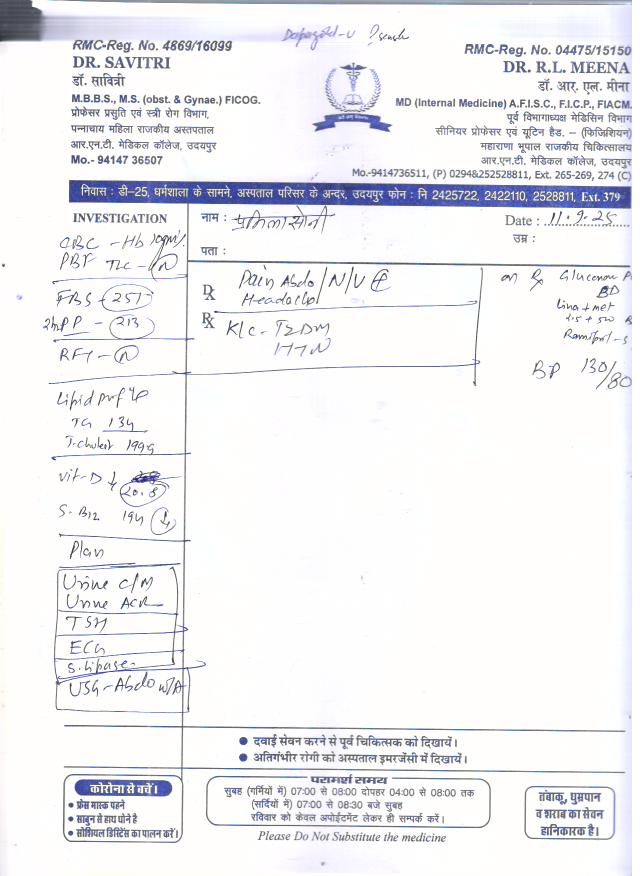 Dapagold-V
RMC-Reg. No. 4869/16099
DR. SAVITRI
डॉ. सावित्री
M.B.B.S., M.S. (obst. & Gynae.) FICOG.
प्रोफेसर प्रसुति एवं स्त्री रोग विभाग,
पन्नाधाय महिला राजकीय अस्तपताल
आर.एन.टी. मेडिकल कॉलेज, उदयपुर
Mo.- 94147 36507
RMC-Reg. No. 04475/15150
DR. R.L. MEENA
डॉ. आर. एल. मीना
MD (Internal Medicine) A.F.I.S.C., F.I.C.P., FIACM.
पूर्व विभागाध्यक्ष मेडिसिन विभाग
सीनियर प्रोफेसर एवं यूटिन हैड, – (फिजिशियन)
महाराणा भूपाल राजकीय चिकित्सालय
आर.एन.टी. मेडिकल कॉलेज, उदयपुर
Mo.-9414736511, (P) 0294&252528811, Ext. 265-269, 274 (C)
निवास : डी-25, धर्मशाला के सामने, अस्पताल परिसर के अन्दर, उदयपुर फोन : नि 2425722, 2422110, 2528811, Ext. 379
INVESTIGATION
CBC - Hb 10gm%
PBF TLC - N
FBS - 257
2hPP - 213
RFT - N
Lipid profile
TG 134
T.cholest 199
Vit-D ↓ 20.8
S. B12 194 ↓
Plan
Urine C/M
Urine ACR
TSH
ECG
S. lipase
USG-Abdo w/A
नाम : प्रमिला सोनी
Date : 11.9.25
पता :
उम्र :
Dx Pain Abdo/N/V
Headache
Rx K/c - T2DM
HTN
on Rx Gluconorm P
BD
Lina + met
2.5 + 500 B
Ramipril - 5
BP 130/80
● दवाई सेवन करने से पूर्व चिकित्सक को दिखायें।
● अतिगंभीर रोगी को अस्पताल इमरजेंसी में दिखायें।
कोरोना से बचें।
● फ्रेस मास्क पहने
● साबुन से हाथ धोने है
● सोशियल डिस्टिेंस का पालन करें।
परामर्श समय
सुबह (गर्मियों में) 07:00 से 08:00 दोपहर 04:00 से 08:00 तक
(सर्दियों में) 07:00 से 08:30 बजे सुबह
रविवार को केवल अपोईंटमेंट लेकर ही सम्पर्क करें।
Please Do Not Substitute the medicine
तंबाकू, धुम्रपान
व शराब का सेवन
हानिकारक है।